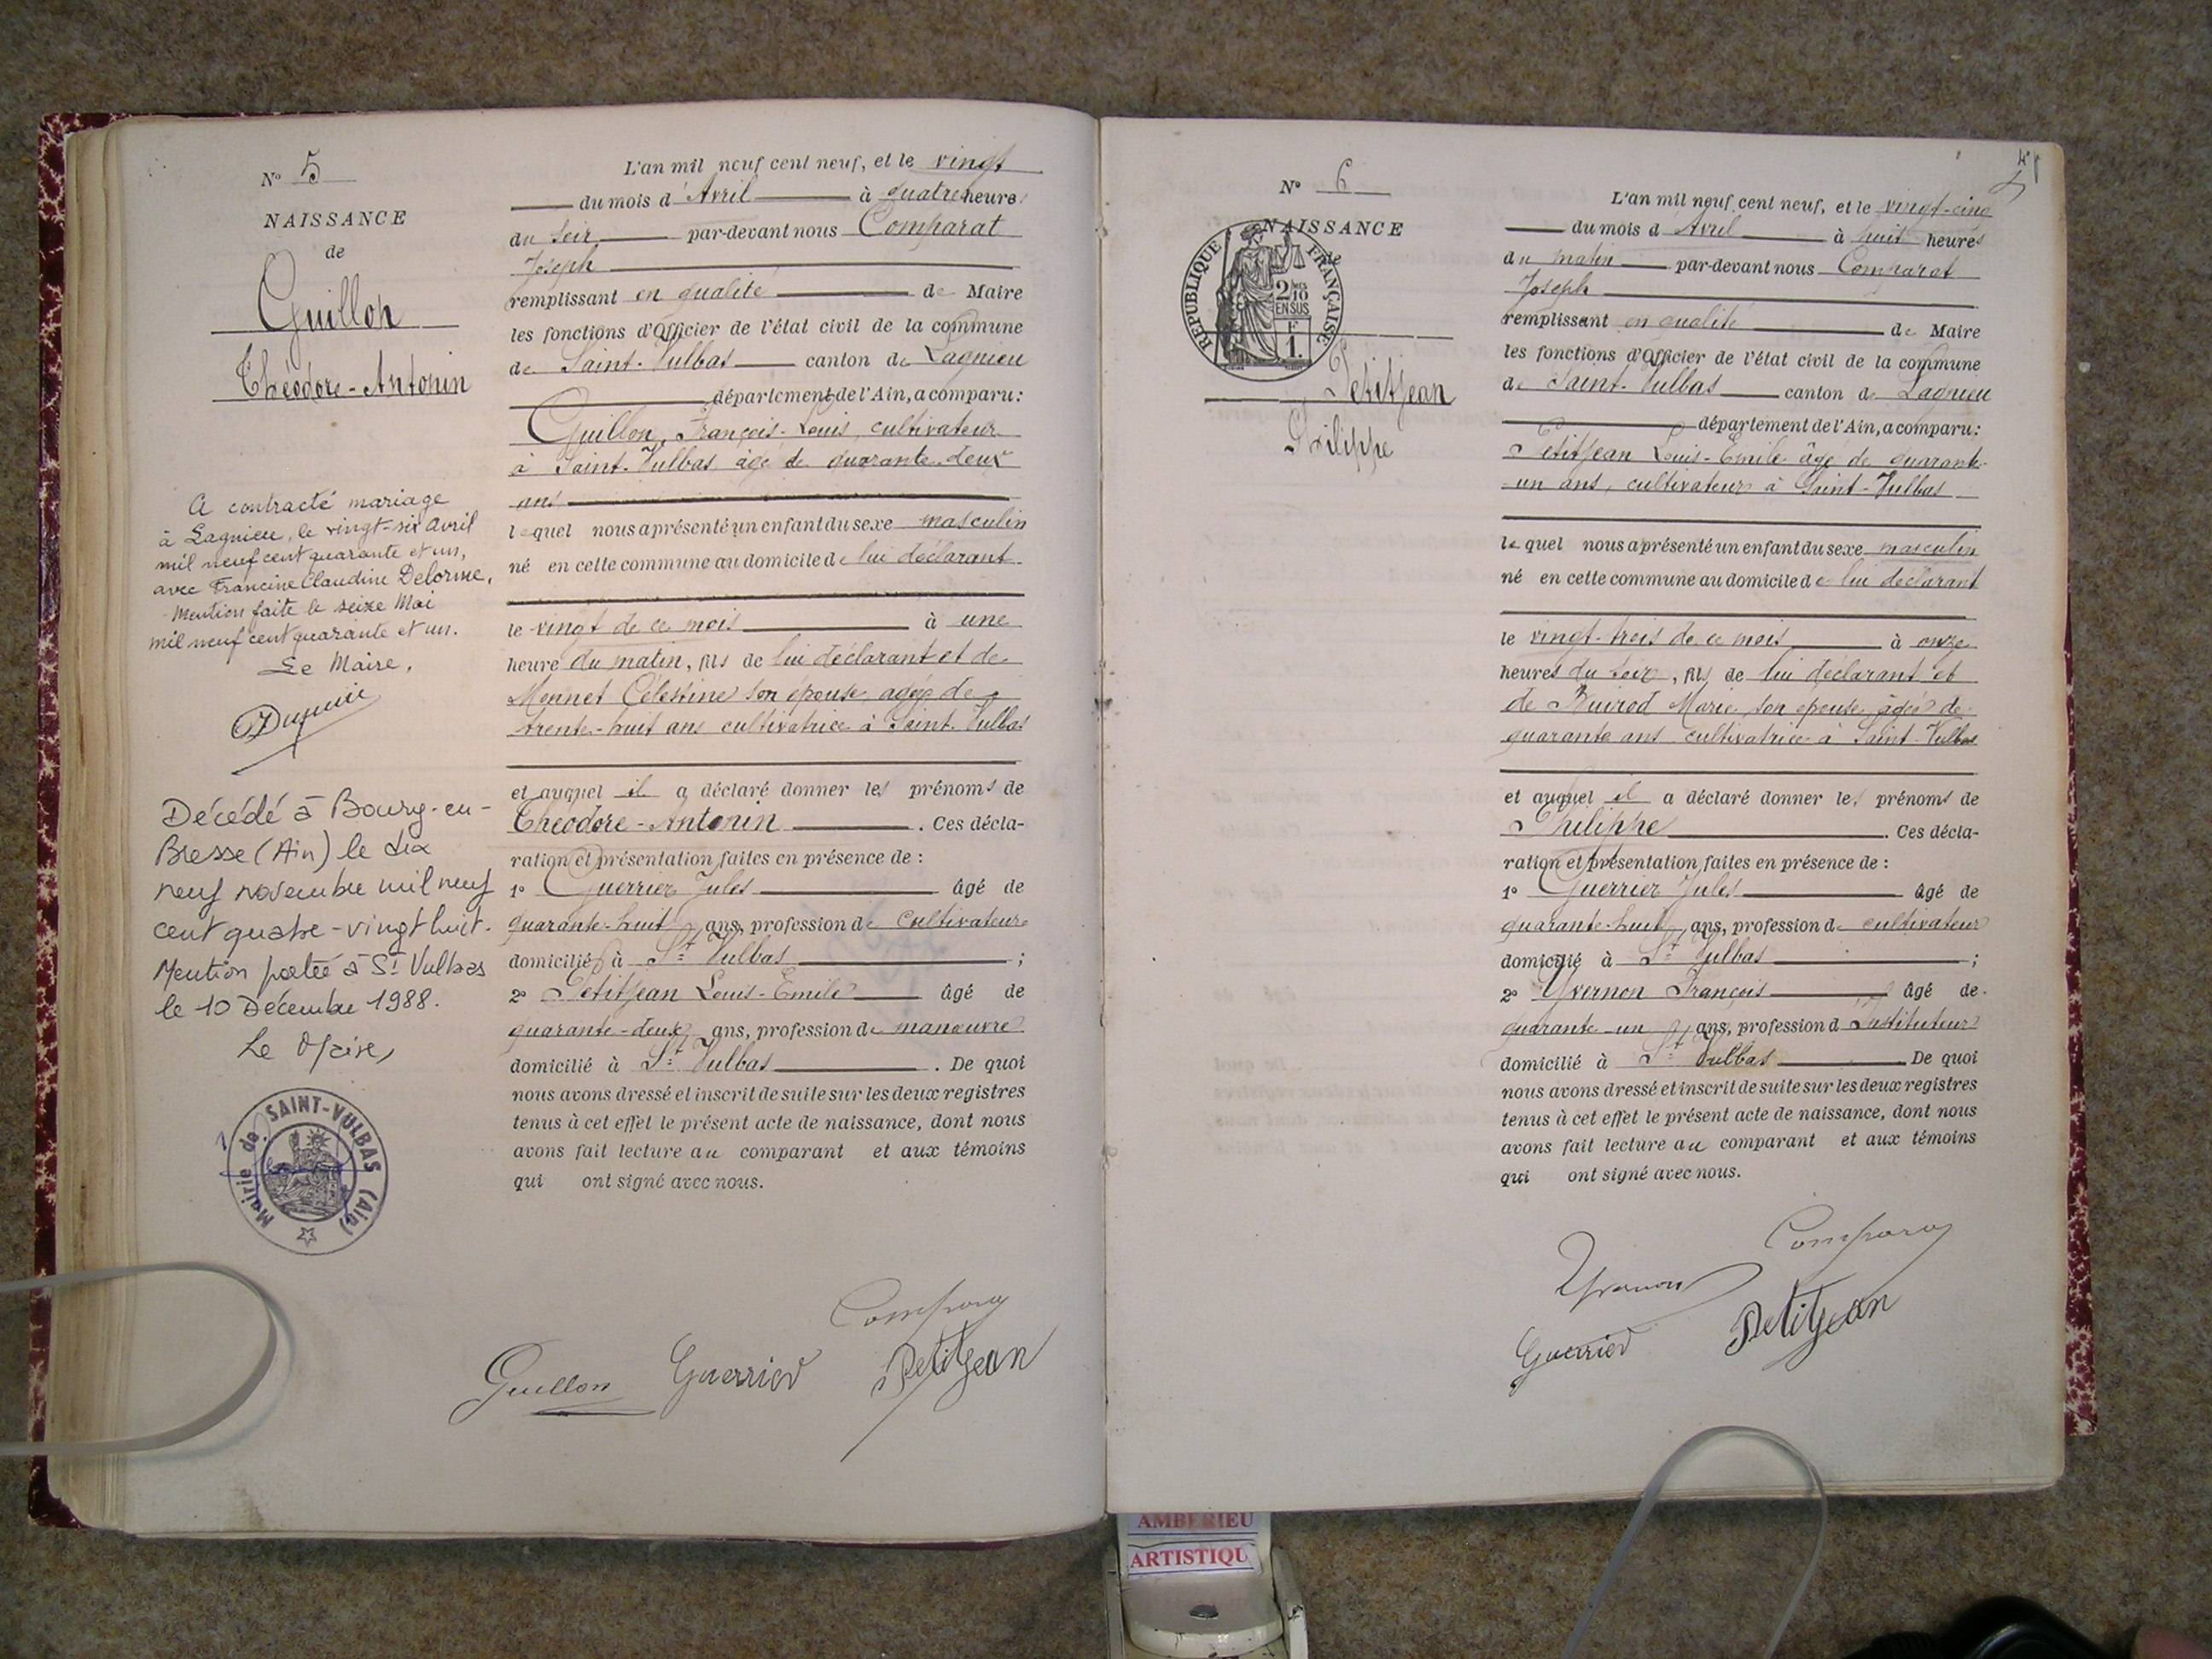 N° 5
NAISSANCE
de
Guillon
Théodore-Antonin
A contracté mariage
à Lagnieu, le vingt-six Avril
mil neuf cent quarante et un,
avec Francine Claudine Delorme.
Mention faite le seize Mai
mil neuf cent quarante et un.
Le Maire,
Décédé à Bourg-en-
Bresse (Ain) le dix
neuf novembre mil neuf
cent quatre-vingt huit.
Mention portée à St Vulbas
le 10 Décembre 1988.
Le Maire,
Mairie de SAINT-VULBAS (Ain)
L'an mil neuf cent neuf, et le vingt
du mois d'Avril à quatre heures
du soir par-devant nous Comparat
Joseph
remplissant en qualité de Maire
les fonctions d'Officier de l'état civil de la commune
de Saint-Vulbas canton de Lagnieu
département de l'Ain, a comparu:
Guillon, François-Louis, cultivateur
à Saint-Vulbas âgé de quarante-deux
ans
lequel nous a présenté un enfant du sexe masculin
né en cette commune au domicile de lui déclarant
le vingt de ce mois à une
heure du matin, fils de lui déclarant et de
Monnet Célestine son épouse agée de
trente-huit ans cultivatrice à Saint-Vulbas
et auquel il a déclaré donner les prénoms de
Théodore-Antonin. Ces décla-
ration et présentation faites en présence de :
1° Guerrier Jules âgé de
quarante-huit ans, profession de cultivateur
domicilié à St Vulbas ;
2° Petitjean Louis-Emile âgé de
quarante-deux ans, profession de manœuvre
domicilié à St Vulbas. De quoi
nous avons dressé et inscrit de suite sur les deux registres
tenus à cet effet le présent acte de naissance, dont nous
avons fait lecture au comparant et aux témoins
qui ont signé avec nous.
Comparat
Guillon Guerrier Petitjean
N° 6
NAISSANCE
de
REPUBLIQUE FRANÇAISE
2/10
EN SUS
F
1.
Petitjean
Philippe
L'an mil neuf cent neuf, et le vingt-cinq
du mois d'Avril à huit heures
du matin par-devant nous Comparat
Joseph
remplissant en qualité de Maire
les fonctions d'Officier de l'état civil de la commune
de Saint-Vulbas canton de Lagnieu
département de l'Ain, a comparu:
Petitjean Louis-Emile âgé de quarante-
un ans, cultivateur à Saint-Vulbas
lequel nous a présenté un enfant du sexe masculin
né en cette commune au domicile de lui déclarant
le vingt-trois de ce mois à onze
heures du soir, fils de lui déclarant et
de Buirod Marie son épouse âgée de
quarante ans cultivatrice à Saint-Vulbas
et auquel il a déclaré donner les prénoms de
Philippe. Ces décla-
ration et présentation faites en présence de :
1° Guerrier Jules âgé de
quarante-huit ans, profession de cultivateur
domicilié à St Vulbas ;
2° Yvernon François âgé de
quarante-un ans, profession d'Instituteur
domicilié à St Vulbas De quoi
nous avons dressé et inscrit de suite sur les deux registres
tenus à cet effet le présent acte de naissance, dont nous
avons fait lecture au comparant et aux témoins
qui ont signé avec nous.
Comparat
Yvernon
Guerrier Petitjean
AMBERIEU
ARTISTIQU